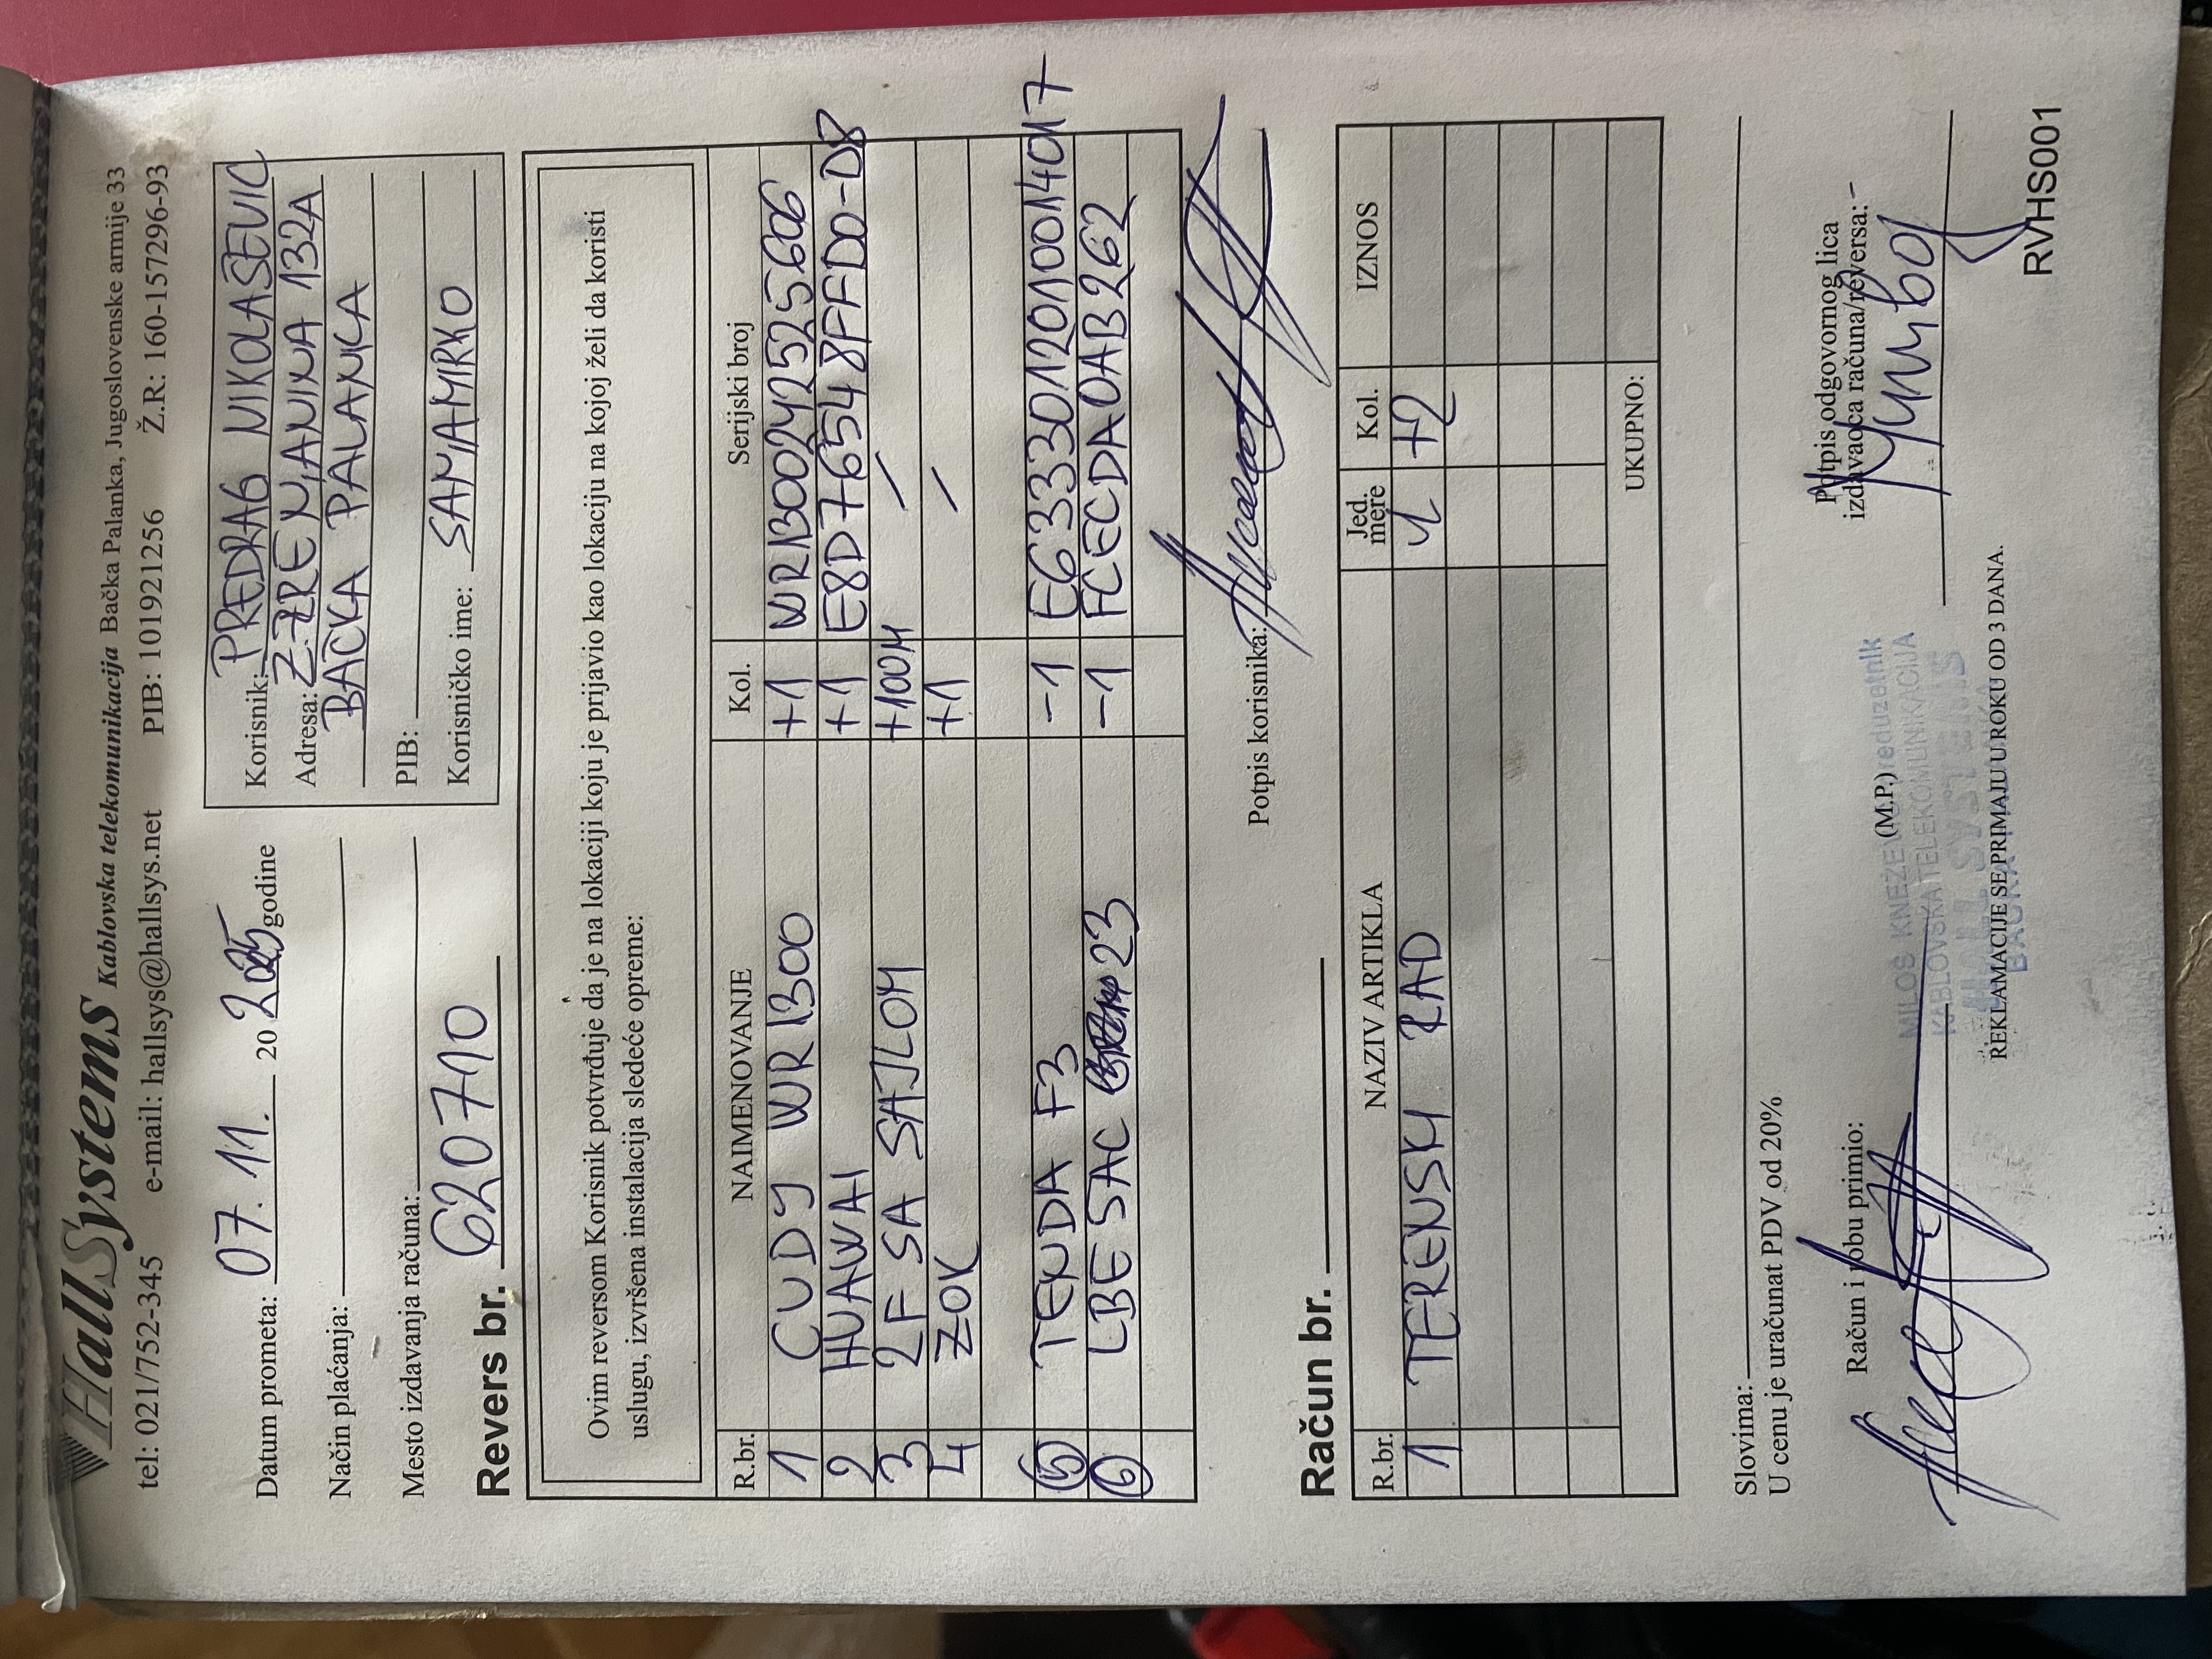 HallSystems Kablovska telekomunikacija Bačka Palanka, Jugoslovenske armije 33
tel: 021/752-345 e-mail: hallsys@hallsys.net PIB: 101921256 Ž.R: 160-157296-93
Datum prometa: 07. 11. 20 2025 godine
Način plaćanja:
Mesto izdavanja računa:
Korisnik: PREDRAG NIKOLAŠEVIĆ
Adresa: Ž. ZRENJANINA 132A
BAČKA PALANKA
PIB:
Korisničko ime: SANJAMIRKO
Revers br. 620710
Ovim reversom Korisnik potvrđuje da je na lokaciji koju je prijavio kao lokaciju na kojoj želi da koristi
uslugu, izvršena instalacija sledeće opreme:
R.br. NAIMENOVANJE Kol. Serijski broj
1 CUDY WR1300 +1 WR1300242525606
2 HUAWAI +1 E8D76548FFD0-D8
3 2F SA SAJLOM +100M /
4 ZOK +1 /
5 TENDA F3 -1 E6333012010014017
6 LBE 5AC 23 -1 FCECDA0AB262
Potpis korisnika:
Račun br.
R.br. NAZIV ARTIKLA Jed. mere Kol. IZNOS
1 TERENSKI RAD +2
UKUPNO:
Slovima:
U cenu je uračunat PDV od 20%
Račun i robu primio:
(M.P.)
Potpis odgovornog lica
izdavaoca računa/reversa:
KABLOVSKA TELEKOMUNIKACIJA
REKLAMACIJE SE PRIMAJU U ROKU OD 3 DANA.
RVHS001